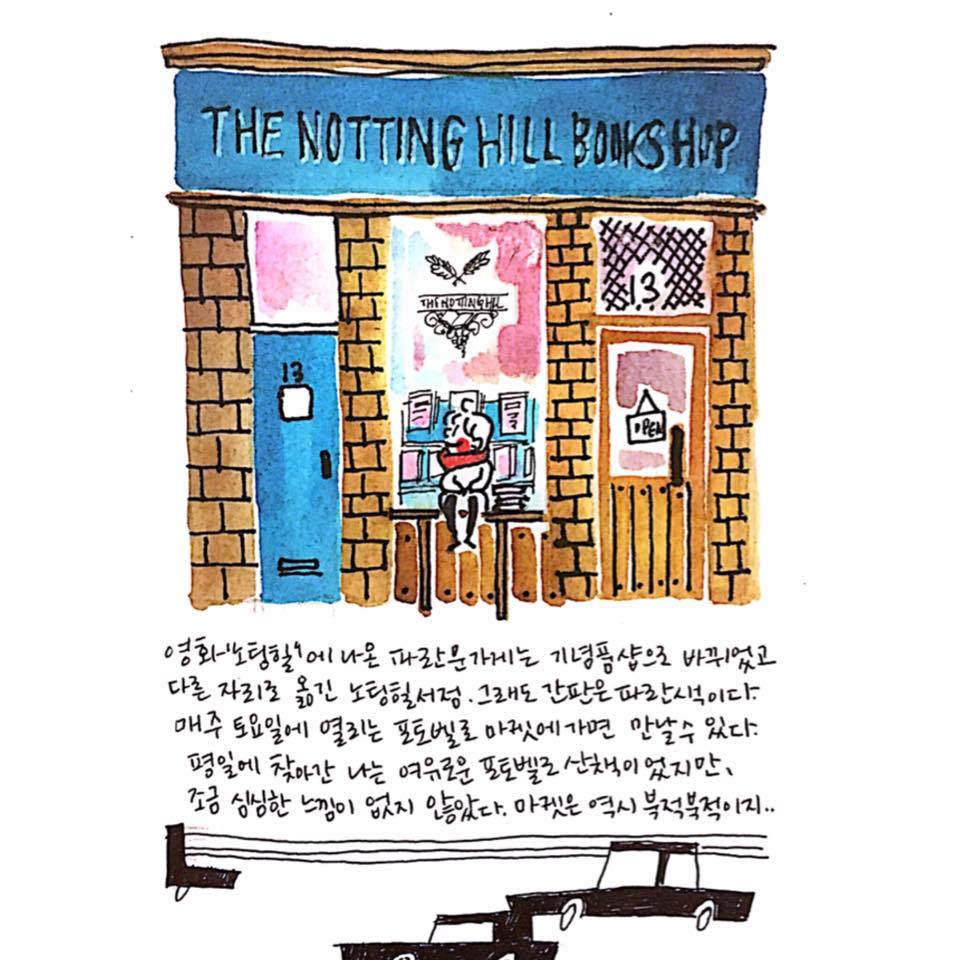 THE NOTTING HILL BOOKSHOP
THE NOTTING HILL
13
13
OPEN
영화 "노팅힐"에 나온 파란문가게는 기념품샵으로 바뀌었고
다른 자리로 옮긴 노팅힐서점. 그래도 간판은 파란색이다.
매주 토요일에 열리는 포토벨로 마켓에 가면 만날수 있다.
평일에 찾아간 나는 여유로운 포토벨로 산책이었지만,
조금 심심한 느낌이 없지 않았다. 마켓은 역시 북적북적이지..